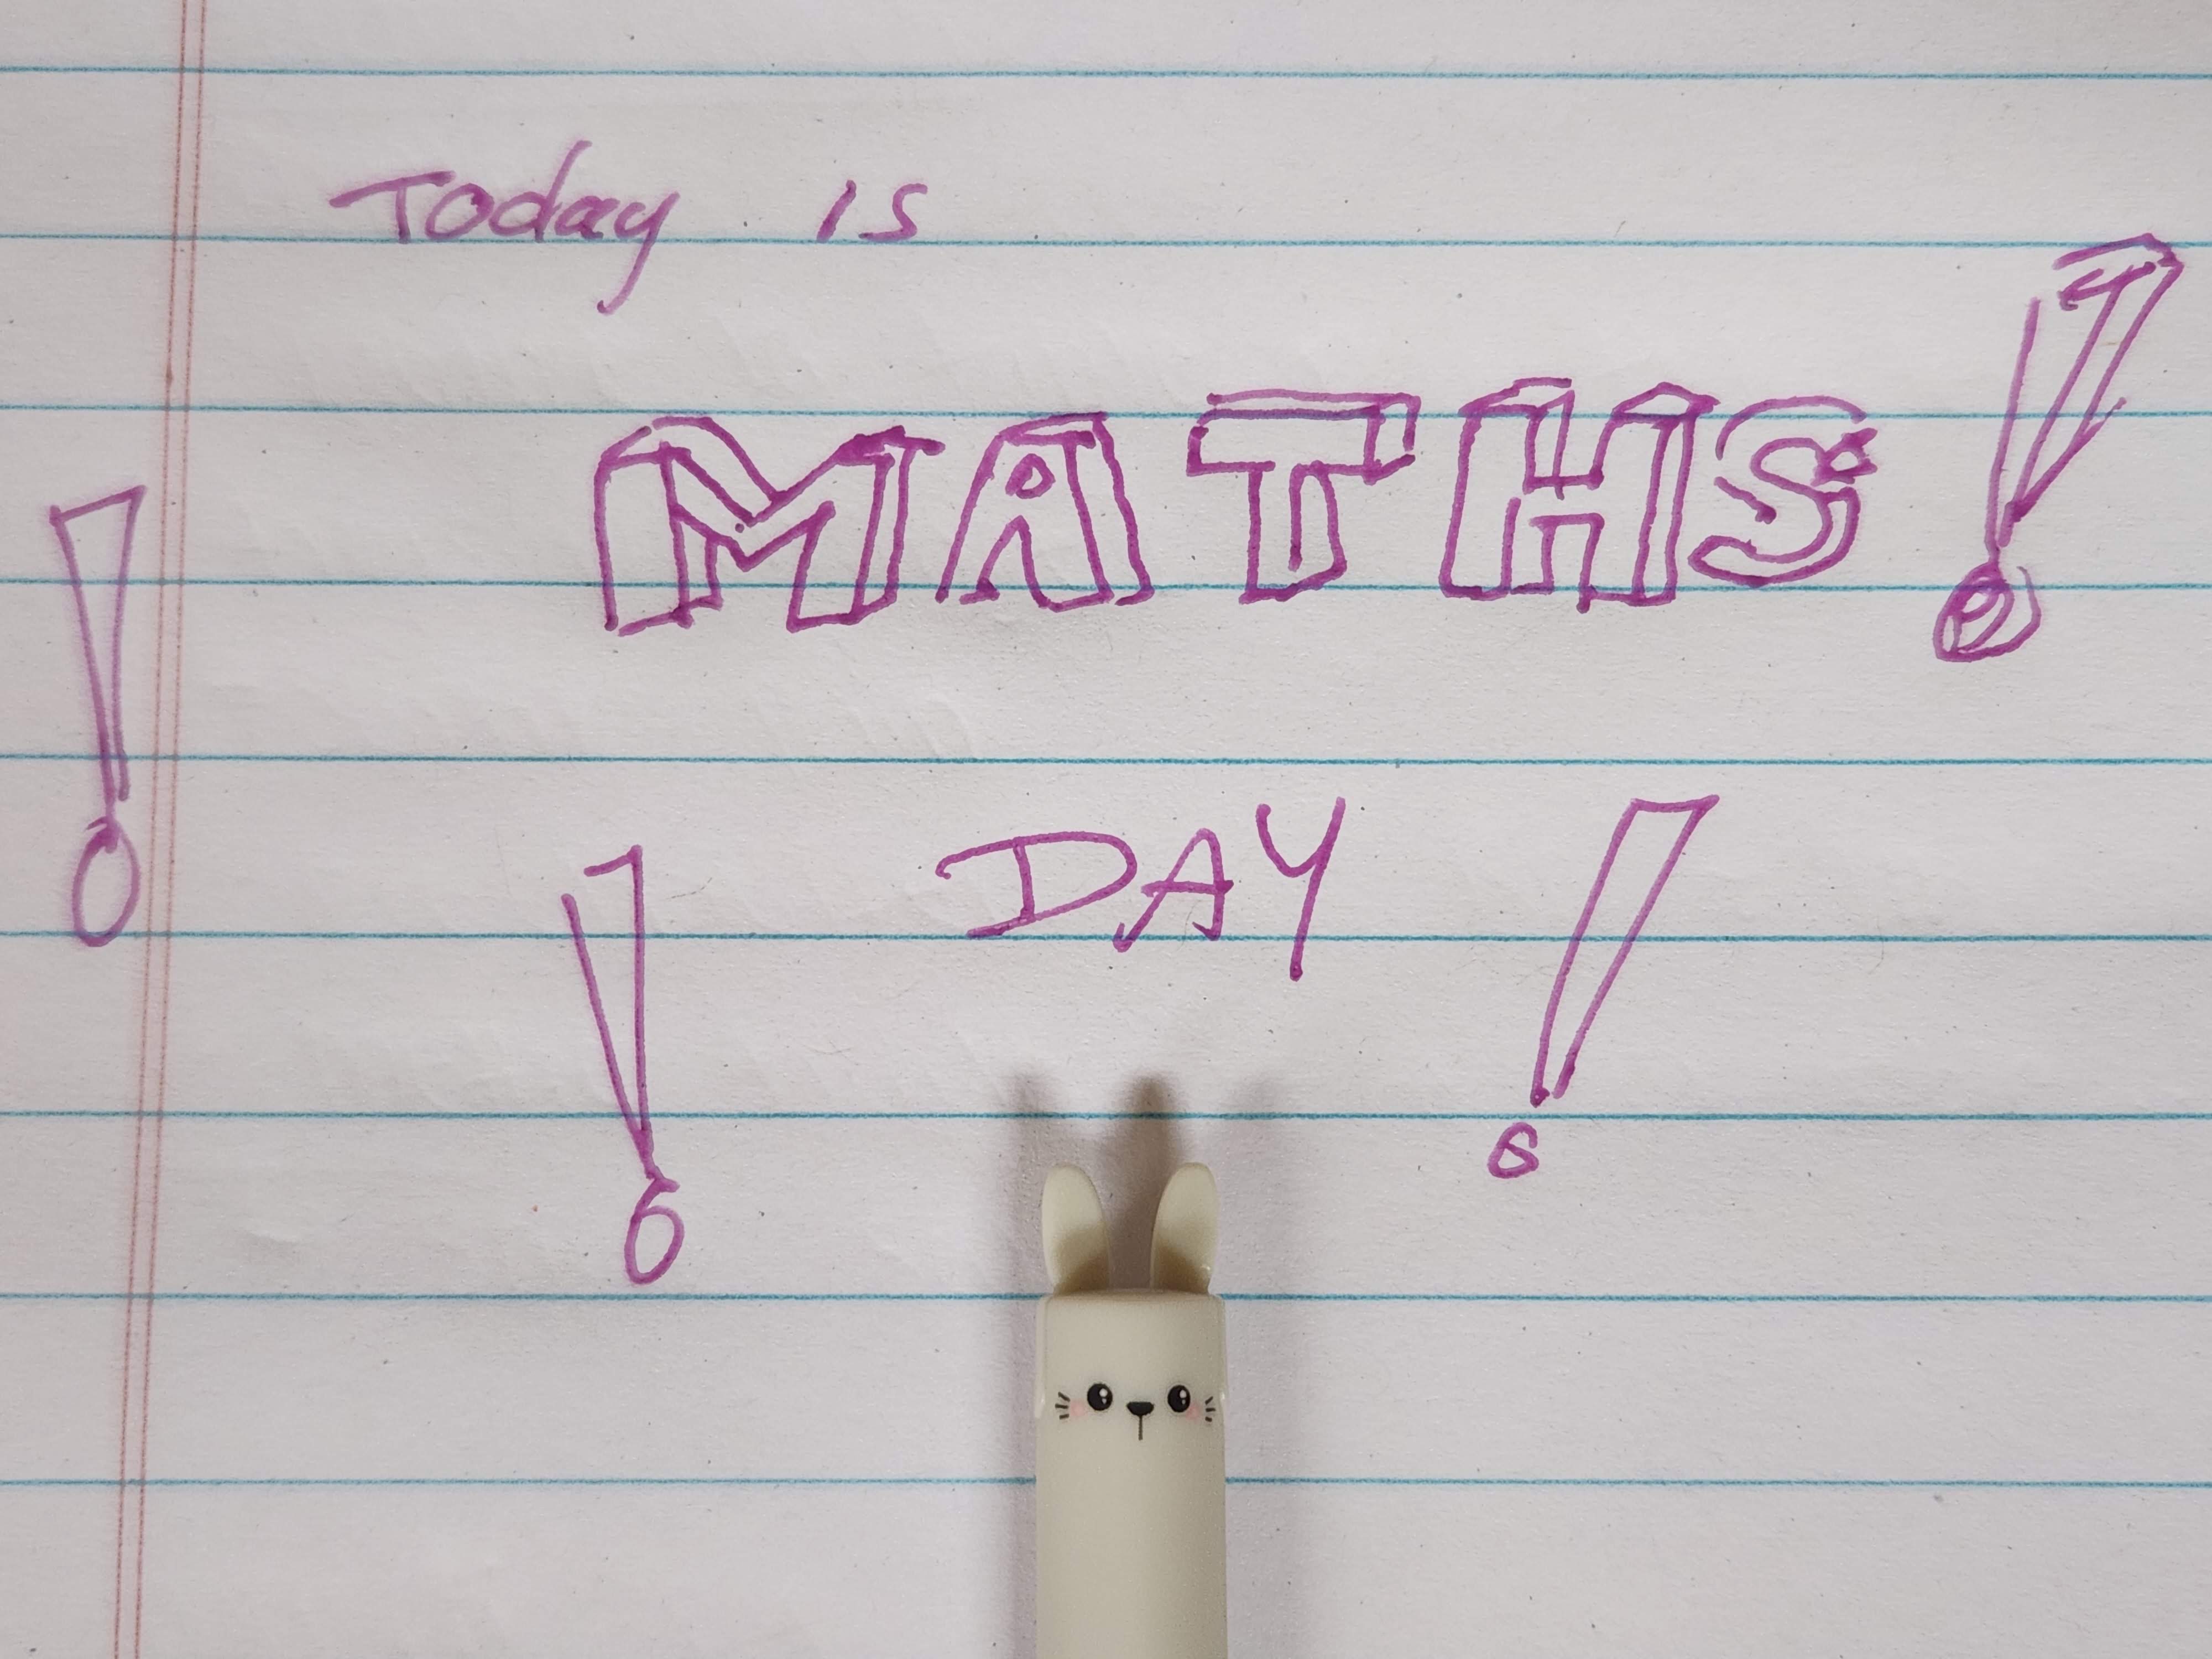 Today is
MATHS!
! ! DAY !